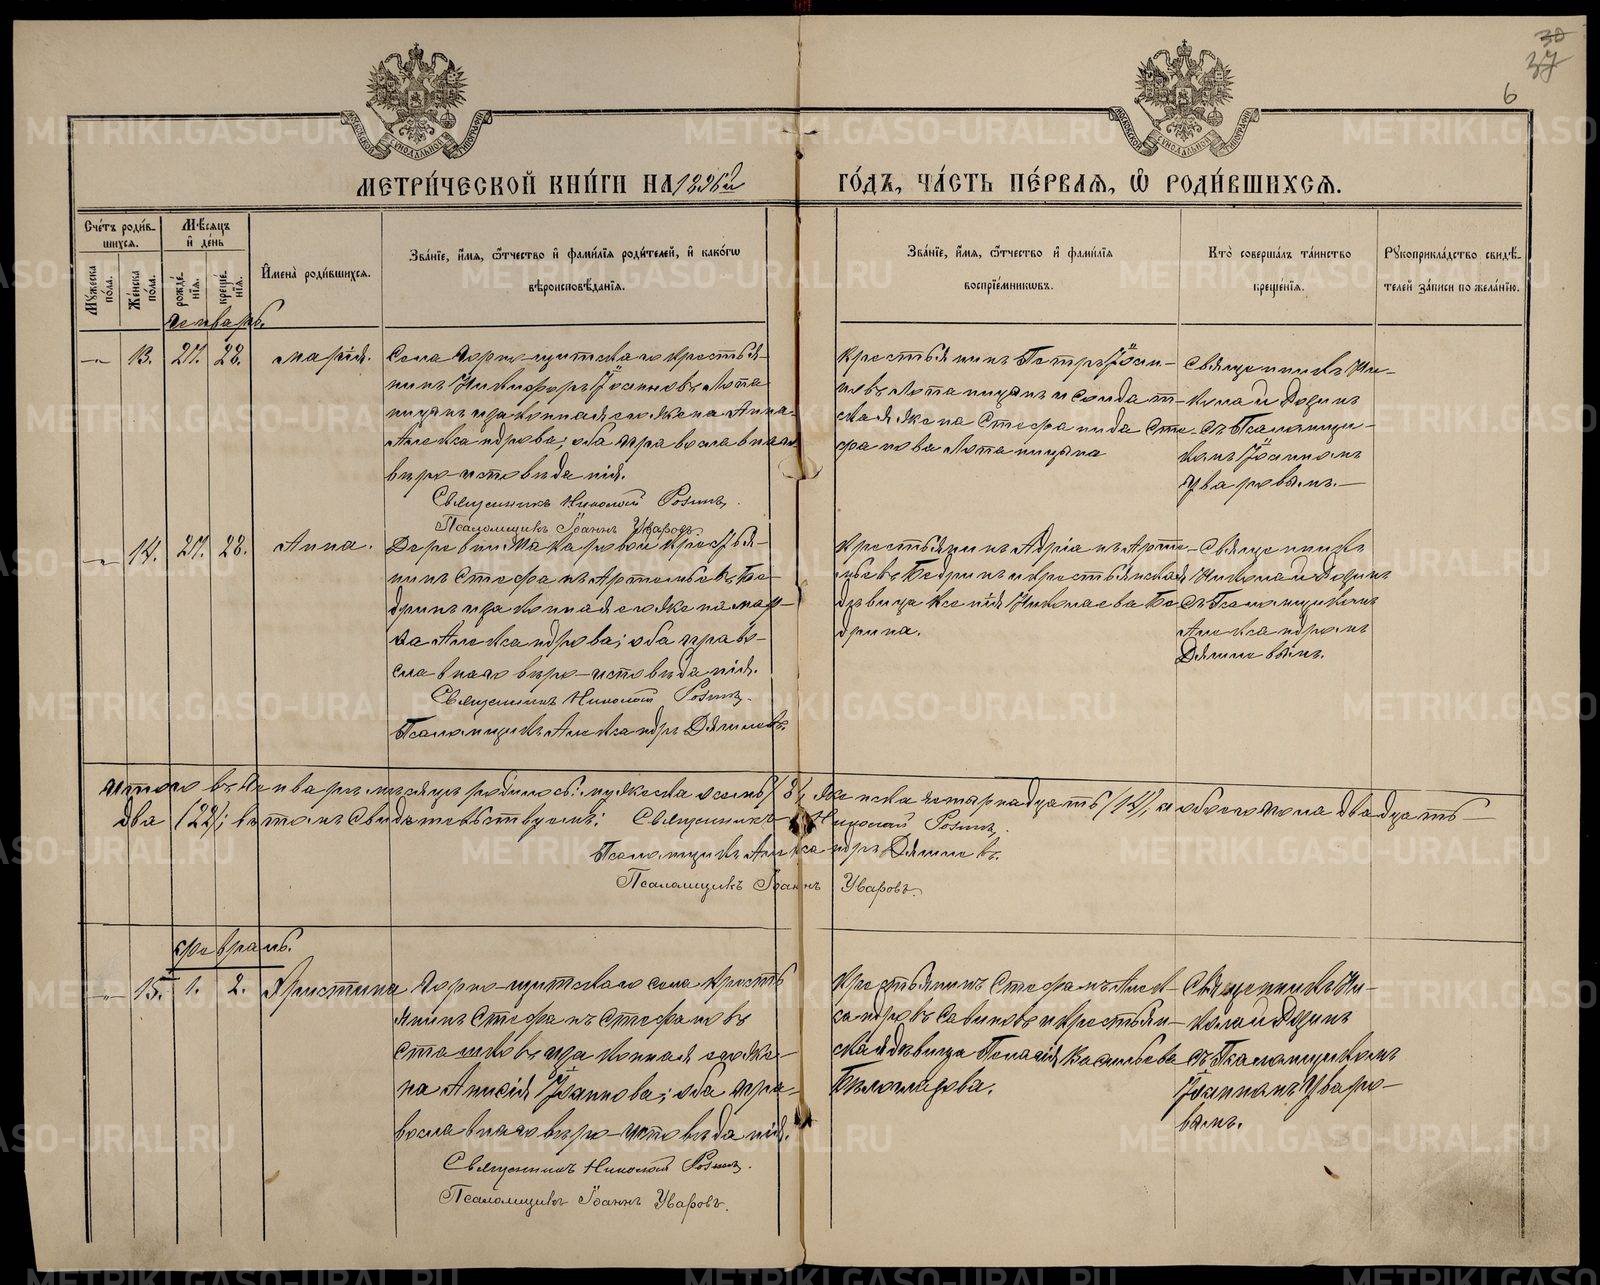 30
37
6
МОСКОВСКОЙ СѴНОДАЛЬНОЙ ТИПОГРАФІИ
МОСКОВСКОЙ СѴНОДАЛЬНОЙ ТИПОГРАФІИ
МЕТРИ́ЧЕСКОЙ КНИ́ГИ НА 1896й ГО́ДЪ, ЧА́СТЬ ПЕ́РВАѦ, Ѡ҆ РОДИ́ВШИХСѦ.
Сче́тъ роди́в-
шихсѧ.
Мѣ́сѧцъ
и҆ де́нь
Мꙋ́жеска по́ла.
Же́нска по́ла.
рожде́нїѧ.
креще́нїѧ.
И҆мена̀ роди́вшихсѧ.
Зва́нїе, и҆́мѧ, ѻ҆́тчество и҆ фами́лїѧ роди́телей, и҆ како́гѡ
вѣроисповѣ́данїѧ.
Зва́нїе, и҆́мѧ, ѻ҆́тчество и҆ фами́лїѧ
воспрїе́мникѡвъ.
Кто̀ соверша́лъ та́инство
креще́нїѧ.
Рꙋкоприкла́дство свидѣ́-
телей за́писи по жела́нїю.
Январь.
-„- 13. 27. 28. Марія.
Села Горно-щитскаго крестья-
нинъ Никифоръ Іоанновъ Лопа
ницынъ и законная его жена Анна
Александрова; оба православнаго
вѣро-исповѣданія.
Священникъ Николай Розинъ.
Псаломщикъ Іоаннъ Уваровъ.
Крестьянинъ Петръ Іоан-
новъ Лопаницынъ и солдат-
ская жена Стефанида Сте-
фанова Лопаницына
Священникъ Ни-
колай Розинъ
съ Псаломщи-
комъ Іоанномъ
Уваровымъ.-
-„- 14. 27. 28. Анна.
Деревни Макаровой крестья-
нинъ Стефанъ Артемьевъ Бе-
дринъ и законная его жена Мар-
ѳа Александрова; оба право-
славнаго вѣро-исповѣданія.
Священникъ Николай Розинъ.
Псаломщикъ Александръ Дягилевъ.
Крестьянинъ Адріанъ Арте-
мьевъ Бедринъ и крестьянская
дѣвица Ксенія Николаева Бе-
дрина.
Священникъ
Николай Розинъ
съ Псаломщикомъ
Александромъ
Дягилевымъ.
Итого въ Январѣ мѣсяцѣ родилось: мужеска осемь (8), женска четырнадцать (14), а обоего пола двадцать-
два (22); въ томъ свидѣтельствуемъ: Священникъ Николай Розинъ.
Псаломщикъ Александръ Дягилевъ.
Псаломщикъ Іоаннъ Уваровъ.
Февраль.
-„- 15. 1. 2. Христина
Горно-щитскаго села кресть
янинъ Стефанъ Стефановъ
Сташковъ и законная его же-
на Анисія Іоаннова; оба пра-
вославнаго вѣро-исповѣданія.
Священникъ Николай Розинъ.
Псаломщикъ Іоаннъ Уваровъ.
Крестьянинъ Стефанъ Алек-
сандровъ Савиновъ и крестьян-
ская дѣвица Пелагія Васильева
Бѣлоглазова.
Священникъ Ни-
колай Розинъ
съ Псаломщикомъ
Іоанномъ Уваро-
вымъ.
METRIKI.GASO-URAL.RU